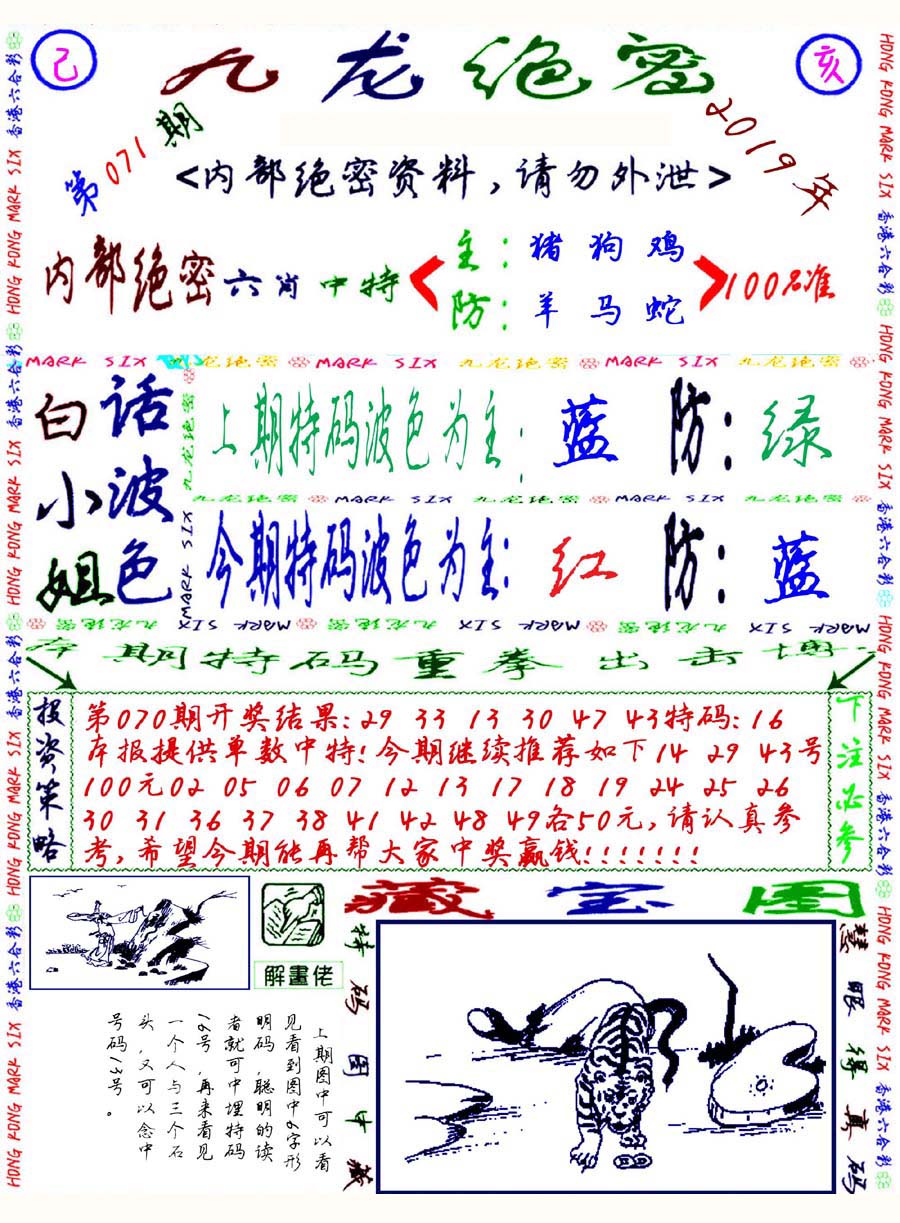 己
九龙绝密
亥
第071期
2019年
<内部绝密资料,请勿外泄>
内部绝密六肖中特
主:猪狗鸡
防:羊马蛇
100%准
MARK SIX 九龙绝密 MARK SIX 九龙绝密 MARK SIX 九龙绝密
白话
小波
姐色
九龙绝密 MARK SIX
上期特码波色为主:蓝 防:绿
九龙绝密 MARK SIX 九龙绝密 MARK SIX 九龙绝密
今期特码波色为主:红 防:蓝
MARK SIX 九龙绝密 MARK SIX 九龙绝密 MARK SIX 九龙绝密
本期特码重拳出击博
投资策略
第070期开奖结果:29 33 13 30 47 43特码:16
本报提供单数中特!今期继续推荐如下14 29 43号
100元02 05 06 07 12 13 17 18 19 24 25 26
30 31 36 37 38 41 42 48 49各50元,请认真参
考,希望今期能再帮大家中奖赢钱!!!!!!!
下注必参
解畫佬
藏宝图
上期图中可以看
见看到图中6字形
明码,聪明的读
者就可中埋特码
16号,再来看见
一个人与三个石
头,又可以念中
号码13号。
特码图中藏
慧眼得真码
香港六合彩 HONG KONG MARK SIX 香港六合彩 HONG KONG MARK SIX 香港六合彩 HONG KONG MARK SIX 香港六合彩 HONG KONG MARK SIX
HONG KONG MARK SIX 香港六合彩 HONG KONG MARK SIX 香港六合彩 HONG KONG MARK SIX 香港六合彩 HONG KONG MARK SIX 香港六合彩